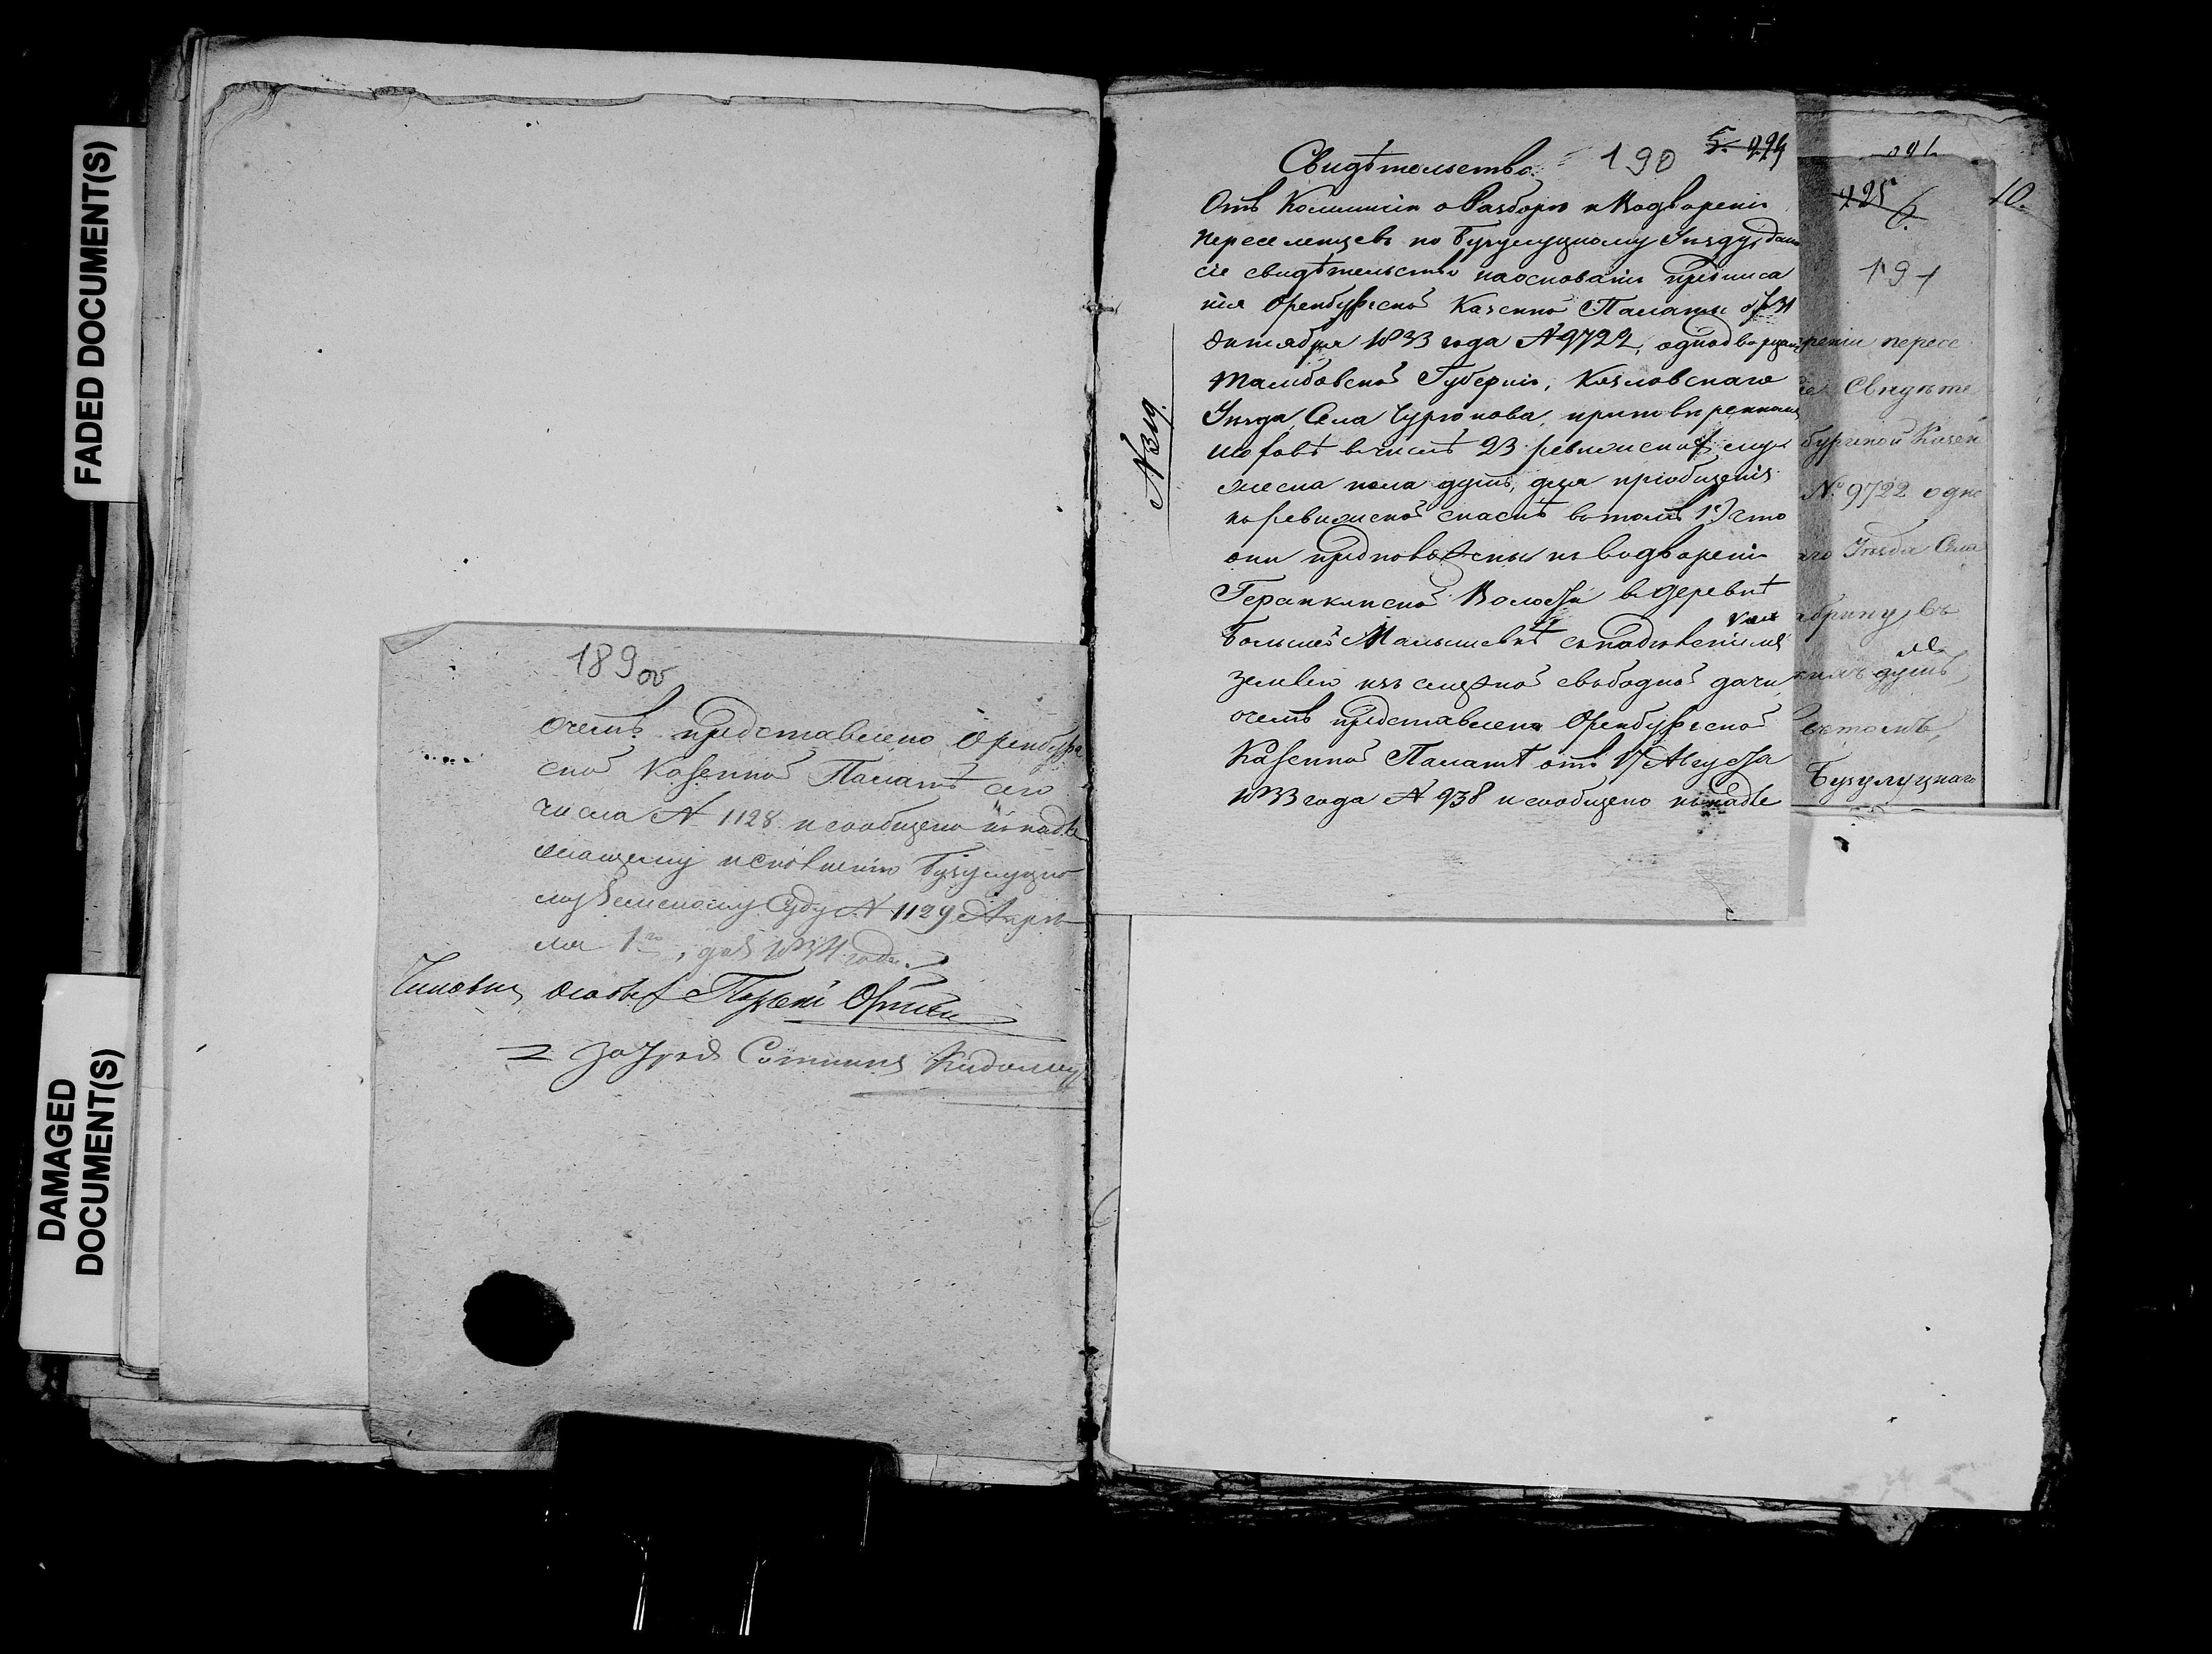 FADED DOCUMENT(S)
DAMAGED
DOCUMENT(S)
189 об
о чемъ представлено Оренбург
ской Казенной Палатѣ сего
числа № 1128 и сообщено къ надле
жащему исполненію Бузулуцко
му Земскому Суду № 1129 Апрѣ
ля 1го дня 1834 года.
Чиновн
Свидѣтельство 190 5. 224
Отъ Коммисіи о Разборѣ и Водвореніи
переселенцевъ по Бузулуцкому Уѣзду, дано
сіе свидѣтельство на основаніи предписа
нія Оренбургской Казенной Палаты от 31
Октября 1833 года № 9722, однодворцамъ
Тамбовской Губерніи, Козловскаго
Уѣзда, Села Чурюкова,
въ числѣ 23 ревижскихъ му
жеска пола душъ, для пріобщенія
къ ревижской скаскѣ въ томъ 1е) что
они къ водворенію
Волости въ деревнѣ
Большой Малышевкѣ съ надѣленіемъ
землею изъ смежной свободной дачи,
о чемъ представлено Оренбургской
Казенной Палатѣ отъ 17 Августа
1833 года № 938 и сообщено къ надле
№ 319.
225
10.
191
реніи пересе
Свидѣте
бургской Казен
№ 9722 одно
аго Уѣзда Села
въ
душъ
въ томъ,
Бузулуцкаго